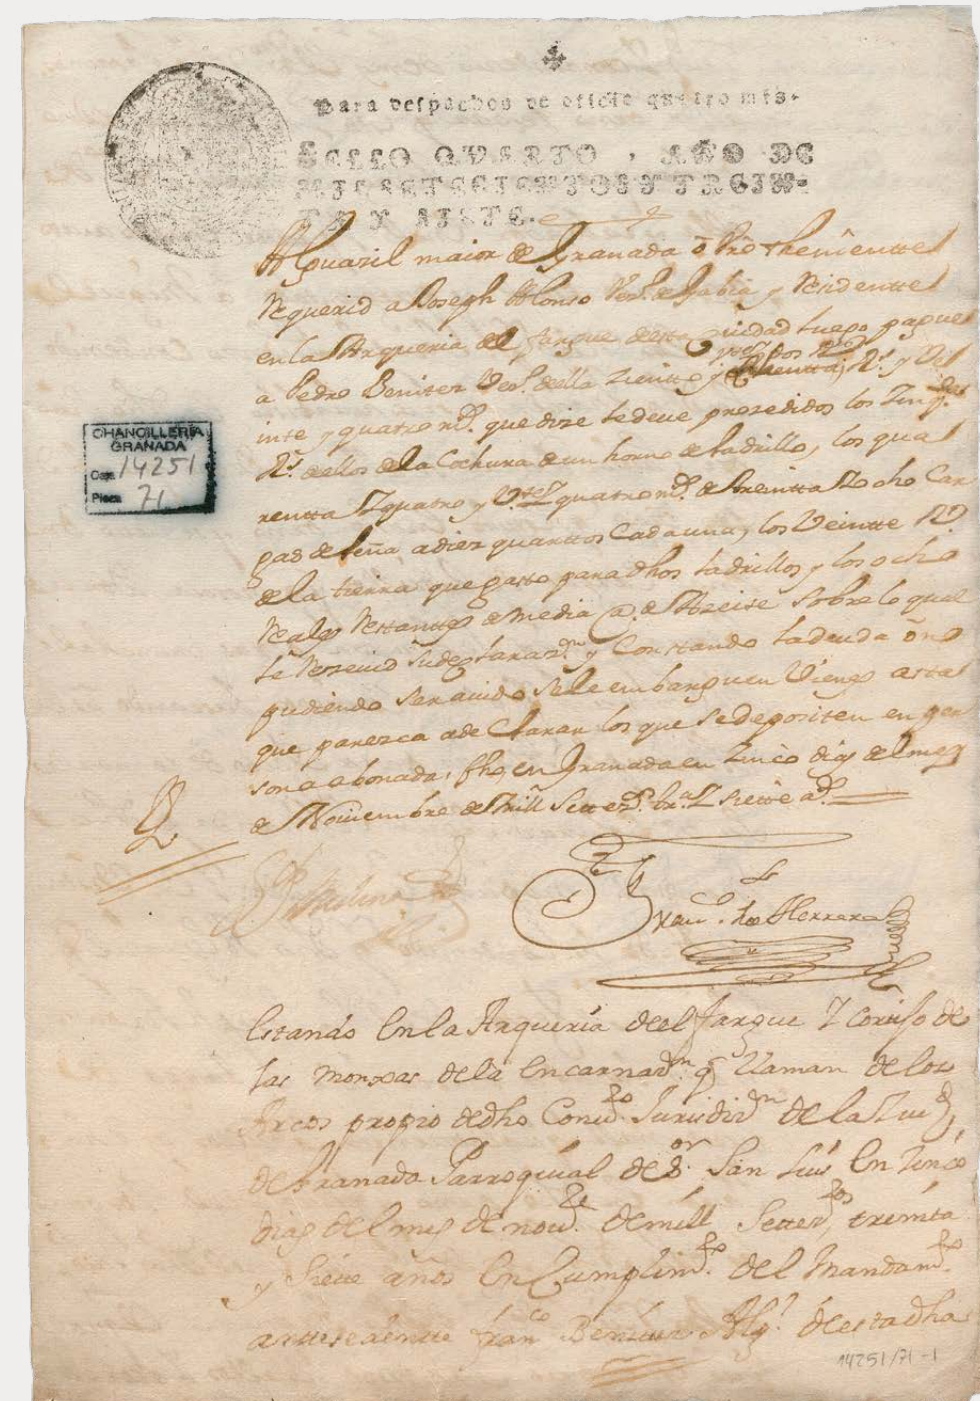 Para despachos de oficio quatro mrs.
SELLO QVARTO, AÑO DE
MIL SETECIENTOS Y TREIN-
TA Y SIETE.
Alguazil maior de Granada ô Vro theniente
Requerid a Joseph Alonso Vezº. de Gabia y Residente
en la Arqueria del fargue desta Ciudad luego pague
a Pedro Benitez Vezº. della Zientto y Rs. y Ve
inte y quatro mrs. que dize le deue prozedidos los
Rs. dellos de la Cochura de un horno de ladrillo, los qua
rentta Y quatro y Vte. quatro mrs. de treintta Y ocho Car
gas de leña a diez quarttos Cada una, los Veintte Rs.
de la tierra que gasto para dhos ladrillos y los ocho
Reales Resttantes de media @. de Azeite sobre lo qual
le Rezeuid su declarazon. y Constando la deuda ô no
pudiendo ser auido se le embarguen Vienes asta
que parezca a declarar los que se depositen en per
sona abonada, fho, en Granada en Zinco dias del mes
de Nouiembre de Mill Settezs. tra. Y Siette as.
CHANCILLERÍA
GRANADA
Caja 14251
Pieza 71
Franco. de Herrera
Estando En la Arqueria deel fargue Y Cortijo de
las Monxas de la Encarnazn. q llaman de los
Arcos propio de dho Conto. Jurisdizn. de la Ziud,
de Granada Parroquial de Sor. San Luis En Zinco
dias del mes de Noure. de mill Settezos, treinta
y Siette años En Cumplimto. del Mandamto.
antesedentte franco Benitez Alg. de esta dha
14251/71-1